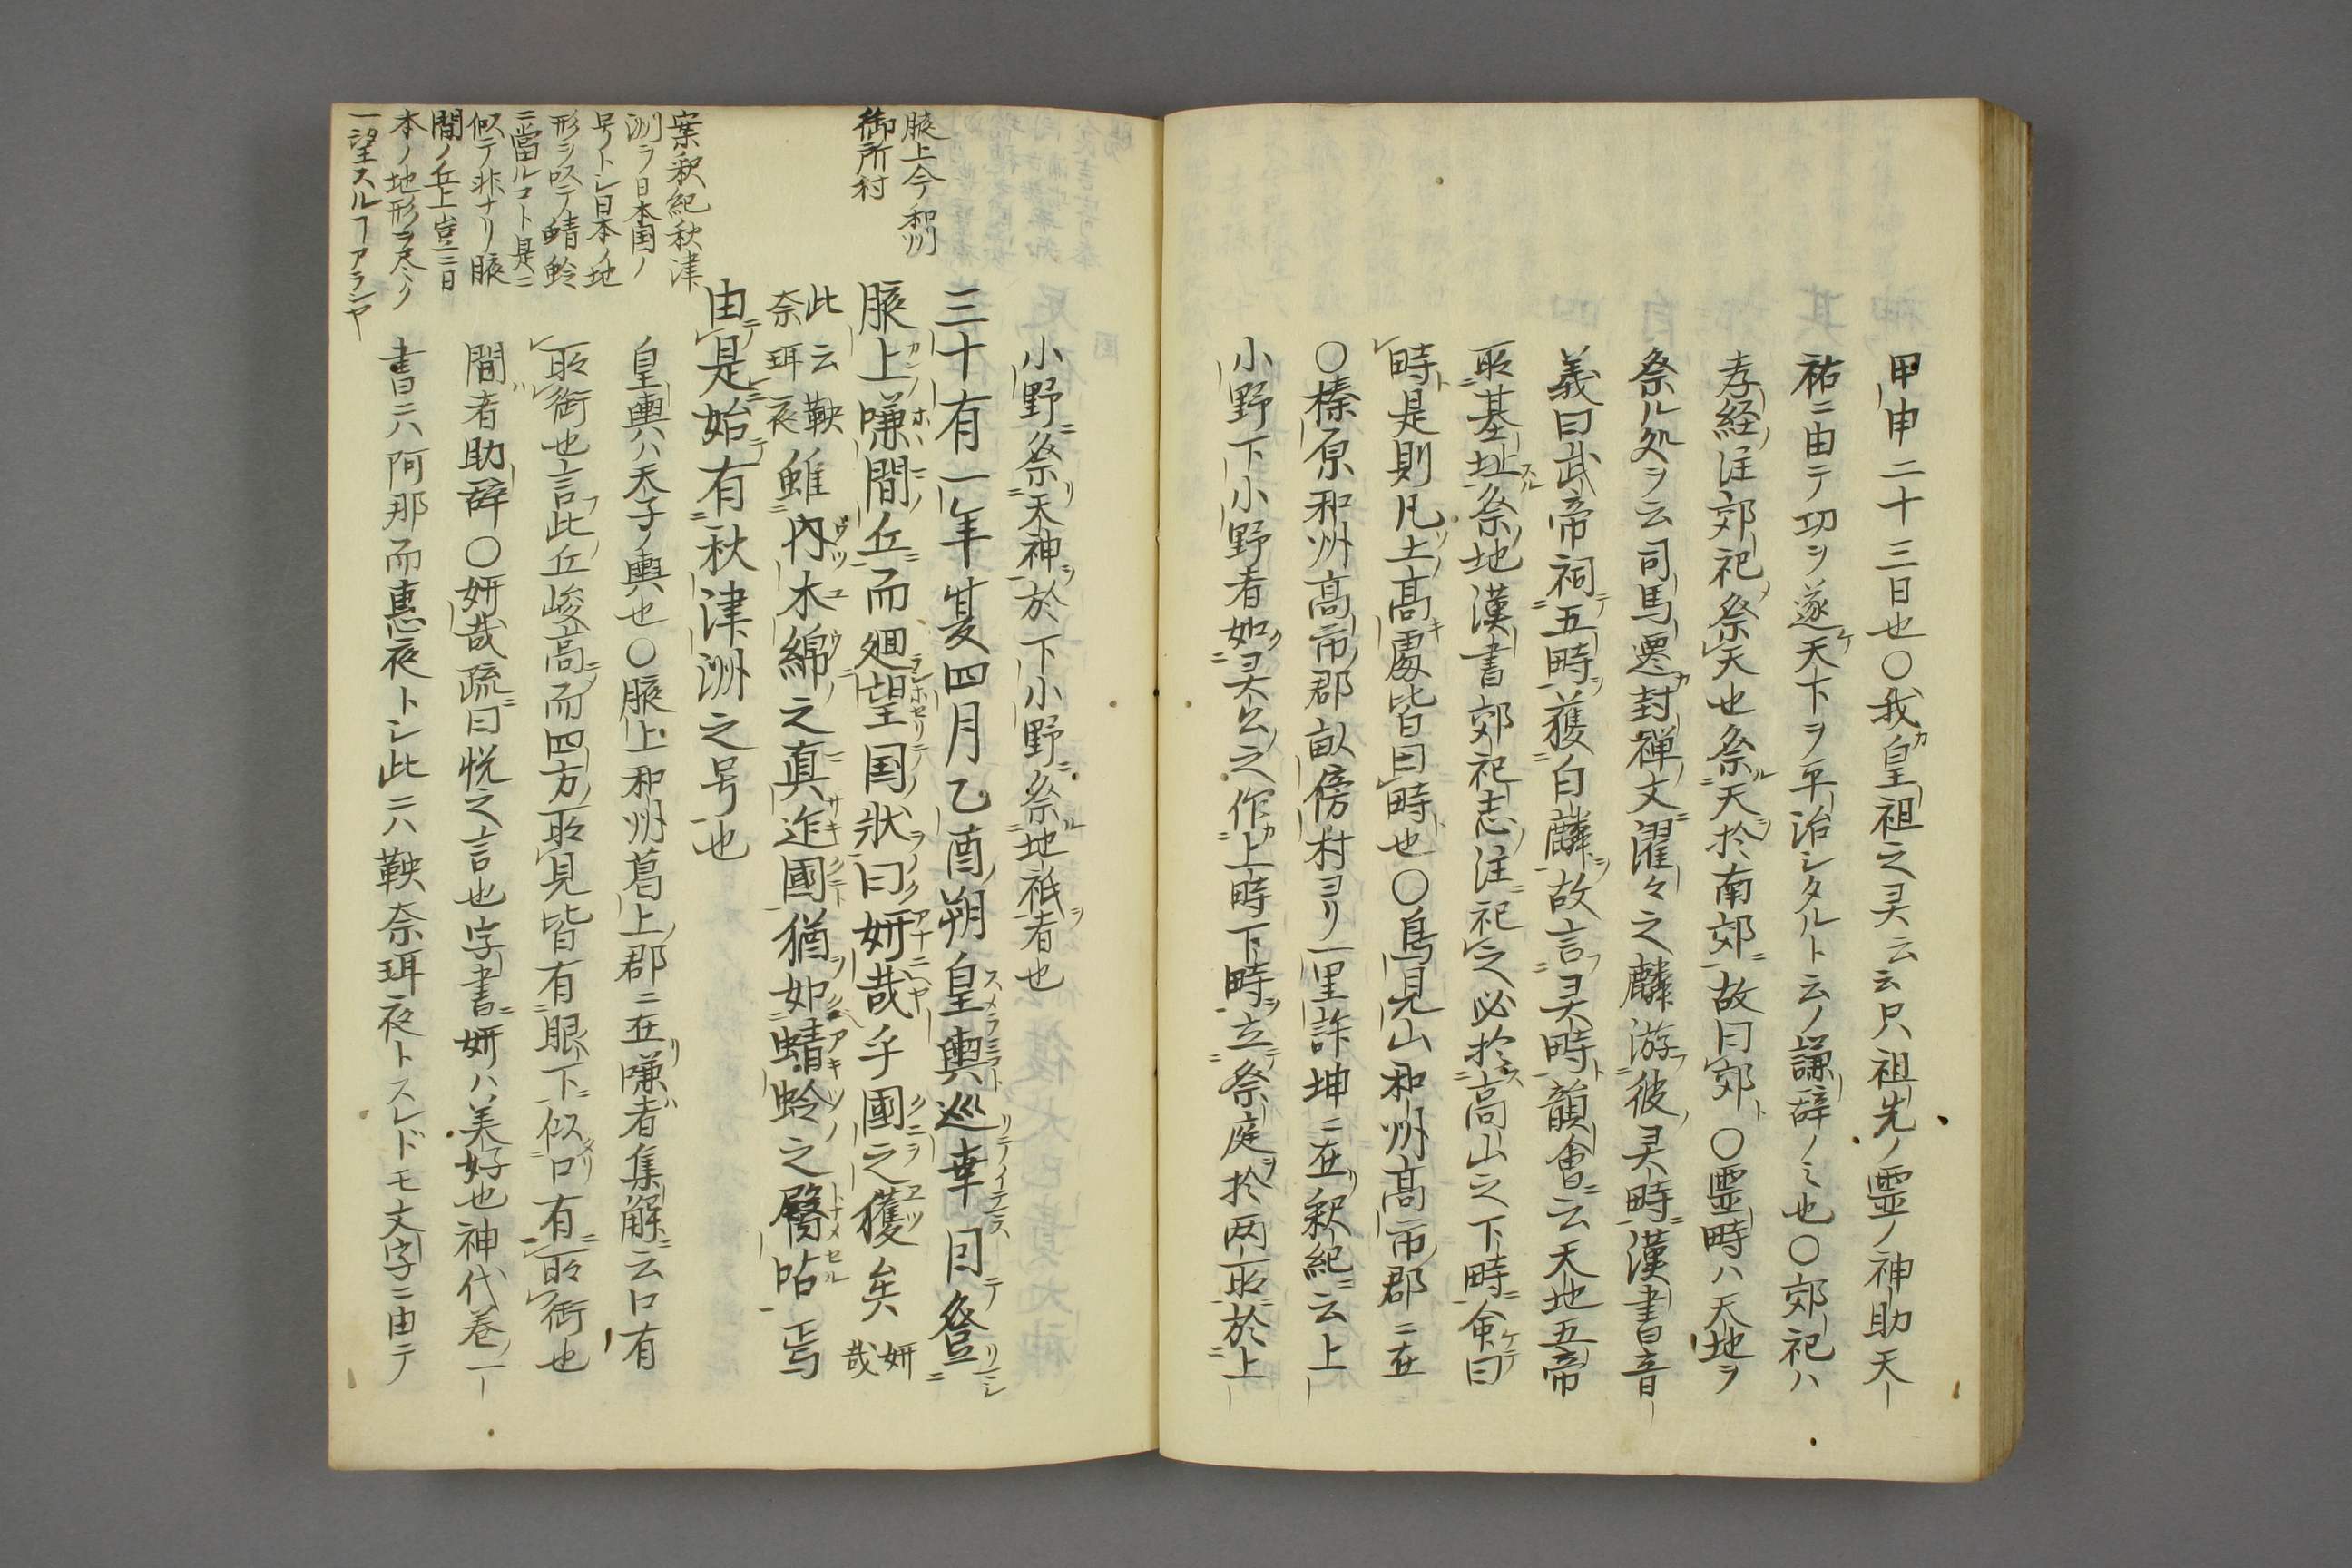 甲申二十三日也〇我皇祖之灵云云只祖先ノ霊ノ神助天
祐ニ由テ功ヲ遂天下ヲ平治シタルト云ノ謙辞ノミ也〇郊祀ハ
孝経注郊祀祭天也祭天於南郊故曰郊〇霊畤ハ天地ヲ
祭ル処ヲ云司馬遷封禅文濯々之麟游彼灵畤漢書音
義曰武帝祠五畤獲白麟故言灵畤韻會云天地五帝
所基址祭地漢書郊祀志注祀之必於高山之下畤命曰
畤是則凡土高處皆曰畤也〇鳥見山和州高市郡ニ在
〇榛原和州高市郡畝傍村ヨリ一里許坤ニ在釈紀云上
小野下小野者如灵公之作上畤下畤立祭庭於两所於上
小野祭天神於下小野祭地祇者也
三十有一年夏四月乙酉朔皇輿巡幸因登
腋上嗛間丘而廻望国狀曰妍哉乎國之獲矣妍哉
此云鞅奈珥夜雖內木綿之真迮國猶如蜻蛉之臀呫焉
由是始有秋津洲之号也
皇輿ハ天子ノ輿也〇腋上和州葛上郡ニ在嗛者集解云口有
所銜也言此丘峻高而四方所見皆有眼下似口有所銜也
間者助辞〇妍哉疏曰悦之言也字書妍ハ美好也神代巻一
書ニハ阿那而惠夜トシ此ニハ鞅奈珥夜トスレドモ文字ニ由テ
腋上今和州
御所村
案釈紀秋津
洲ヲ日本国ノ
号トシ日本ノ地
形ヲ以テ蜻蛉
ニ當ルコト是ニ
似テ非ナリ腋
間ノ丘上豈ニ日
本ノ地形ヲ尽ク
一望スルヿアランヤ